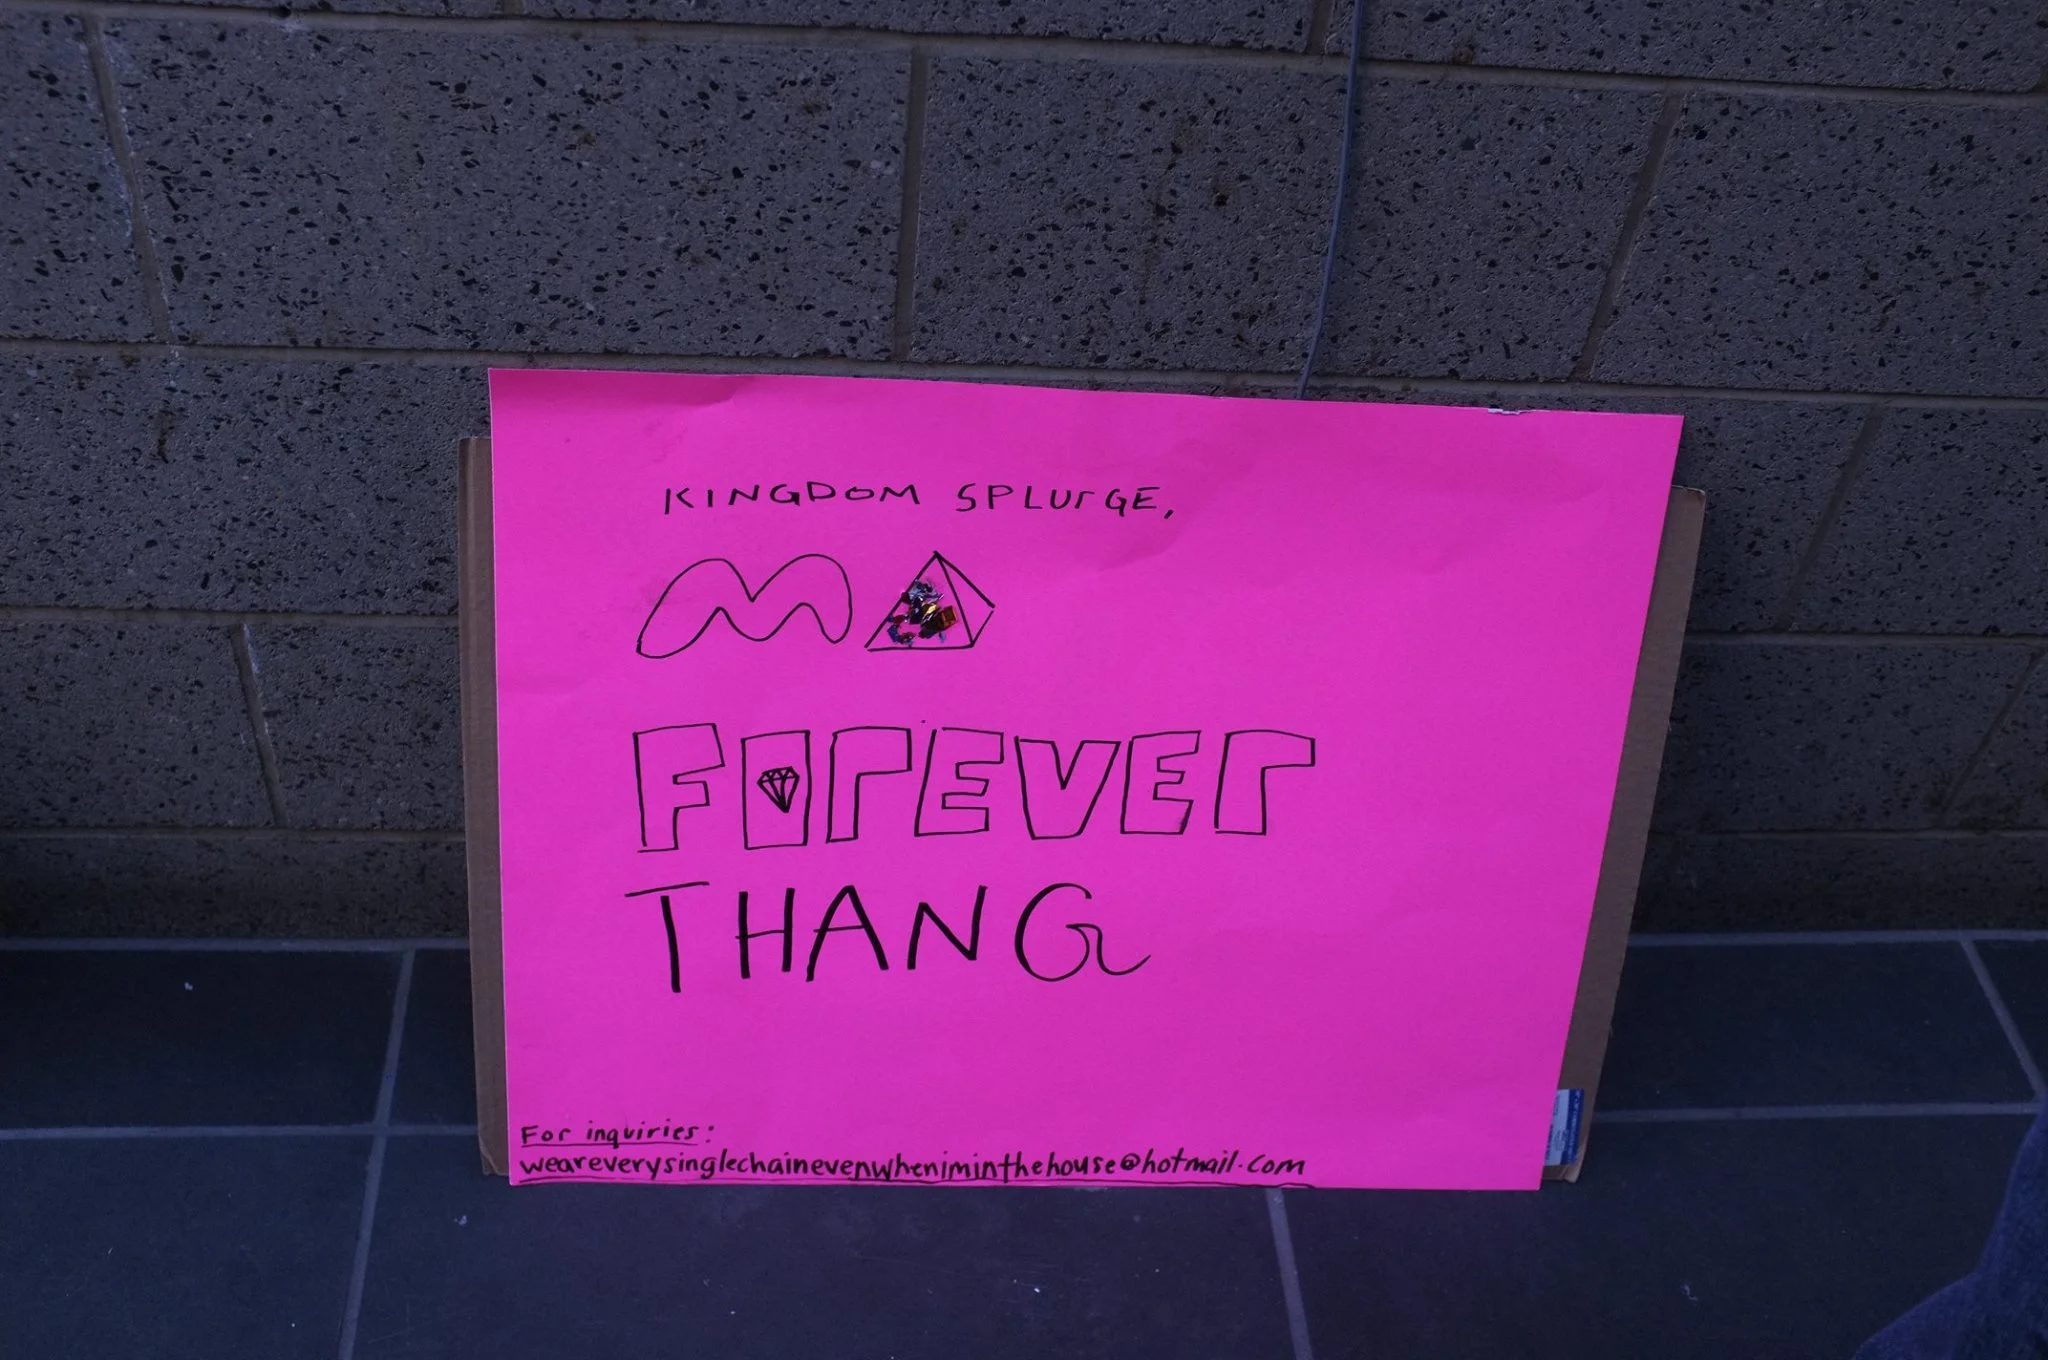 KINGDOM SPLURGE,
MA
FOREVER
THANG
For inquiries:
weareverysinglechainevenwheniminthehouse@hotmail.com